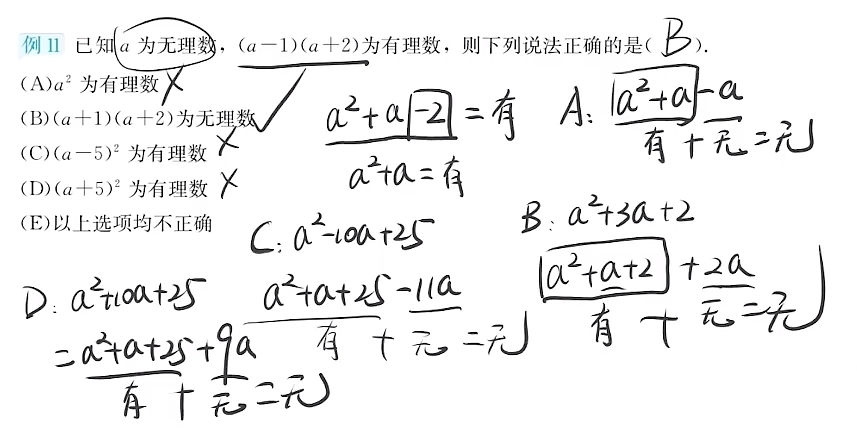 例 11 已知 a 为无理数，(a－1)(a＋2)为有理数，则下列说法正确的是( B ).
(A)a² 为有理数 ×
(B)(a＋1)(a＋2)为无理数 ✓
(C)(a－5)² 为有理数 ×
(D)(a＋5)² 为有理数 ×
(E)以上选项均不正确
a²+a-2=有
a²+a=有
A: a²+a-a
有+无=无
B: a²+3a+2
a²+a+2+2a
有+无=无
C: a²-10a+25
a²+a+25-11a
有+无=无
D: a²+10a+25
=a²+a+25+9a
有+无=无